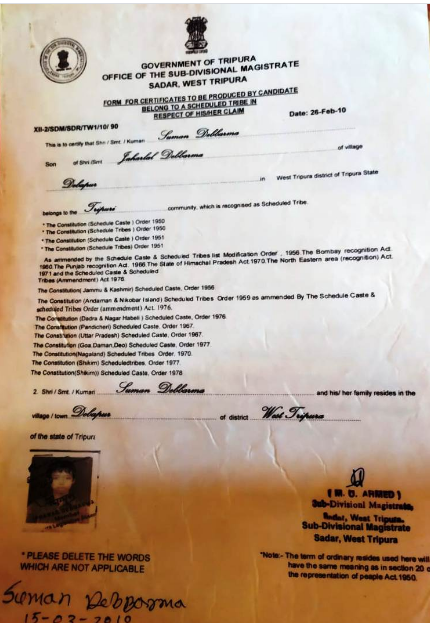 GOVERNMENT OF TRIPURA
OFFICE OF THE SUB-DIVISIONAL MAGISTRATE
SADAR, WEST TRIPURA
FORM FOR CERTIFICATES TO BE PRODUCED BY CANDIDATE
BELONG TO A SCHEDULED TRIBE IN
RESPECT OF HIS/HER CLAIM
Date: 26-Feb-10
XII-2/SDM/SDR/TW1/10/ 90
This is to certify that Shri / Smt. / Kumari Suman Debbarma
Son of Shri /Smt Jaharlal Debbarma of village
Debapur in West Tripura district of Tripura State
belongs to the Tripuri community, which is recognised as Scheduled Tribe.
* The Constitution (Schedule Caste ) Order 1950
* The Constitution (Scheduled Tribes) Order 1950
* The Constitution (Schedule Caste ) Order 1951
* The Constitution (Schedule Tribes) Order 1951
As ammended by the Schedule Caste & Scheduled Tribes list Modification Order , 1956 The Bombay recognition Act.
1960.The Punjab recognition Act. 1966.The State of Himachal Pradesh Act 1970.The North Eastern area (recognition) Act.
1971 and the Scheduled Caste & Scheduled
Tribes (Ammendment) Act 1976.
The Constitution( Jammu & Kashmir) Scheduled Caste, Order 1956
The Constitution (Andaman & Nikobar Island) Scheduled Tribes Order 1959 as ammended By The Schedule Caste &
scheduled Tribes Order (ammendment) Act. 1976.
The Constitution (Dadra & Nagar Habeli ) Scheduled Caste, Order 1976.
The Constitution (Pandicheri) Scheduled Caste, Order 1967.
The Constitution (Uttar Pradesh) Scheduled Caste, Order 1967.
The Constitution (Goa,Daman,Deo) Scheduled Caste, Order 1977
The Constitution(Nagaland) Scheduled Tribes Order. 1970.
The Constitution (Shikim) Scheduledtribes. Order 1977.
The Constitution(Shikim)) Scheduled Casta, Order 1978
2. Shri / Smt. / Kumari Suman Debbarma and his/ her family resides in the
village / town Debapur of district West Tripura
of the state of Tripuri
( M. U. ARMED )
Sub-Divisionl Magistrate,
Sadar, West Tripura.
Sub-Divisional Magistrate
Sadar, West Tripura
* PLEASE DELETE THE WORDS
WHICH ARE NOT APPLICABLE
*Note:- The term of ordinary resides used here will
have the same meaning as in section 20 o
the representation of people Act.1950.
Suman Debbarma
15-02-2010